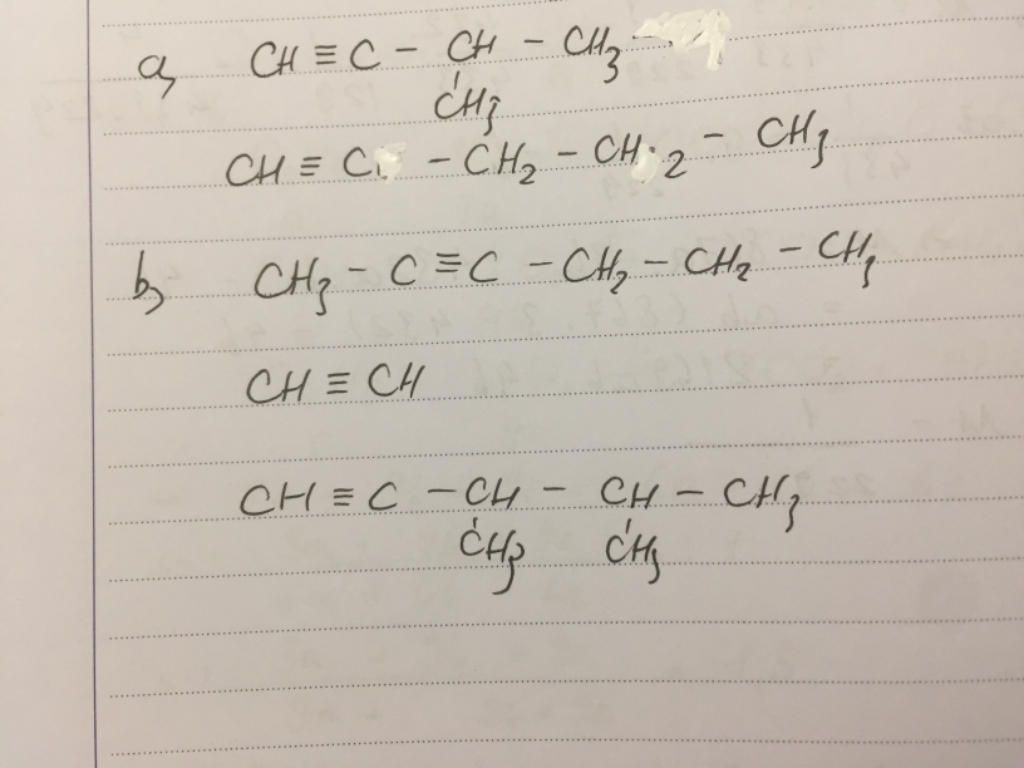 a, CH ≡ C - CH - CH3
CH3
CH ≡ C - CH2 - CH2 - CH3
b, CH3 - C ≡ C - CH2 - CH2 - CH3
CH ≡ CH
CH ≡ C - CH - CH - CH3
CH3 CH3